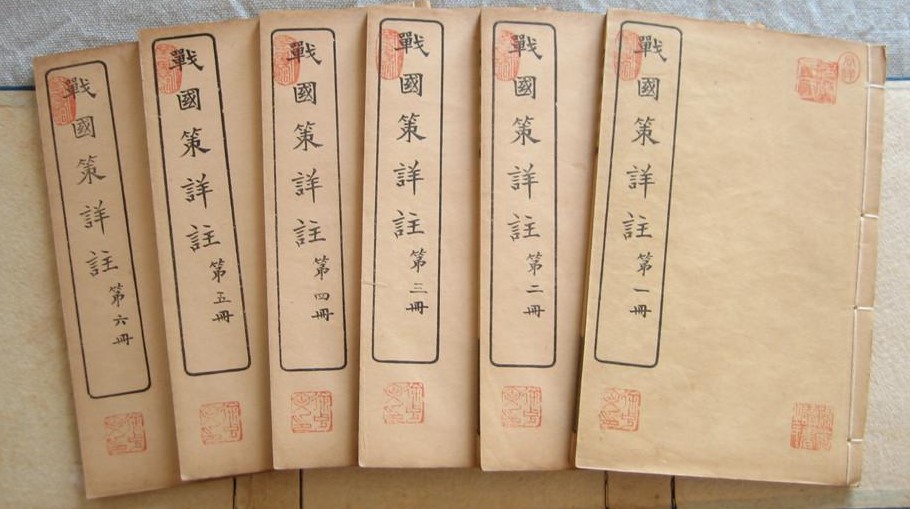 戰國策詳註第一冊
戰國策詳註第二冊
戰國策詳註第三冊
戰國策詳註第四冊
戰國策詳註第五冊
戰國策詳註第六冊